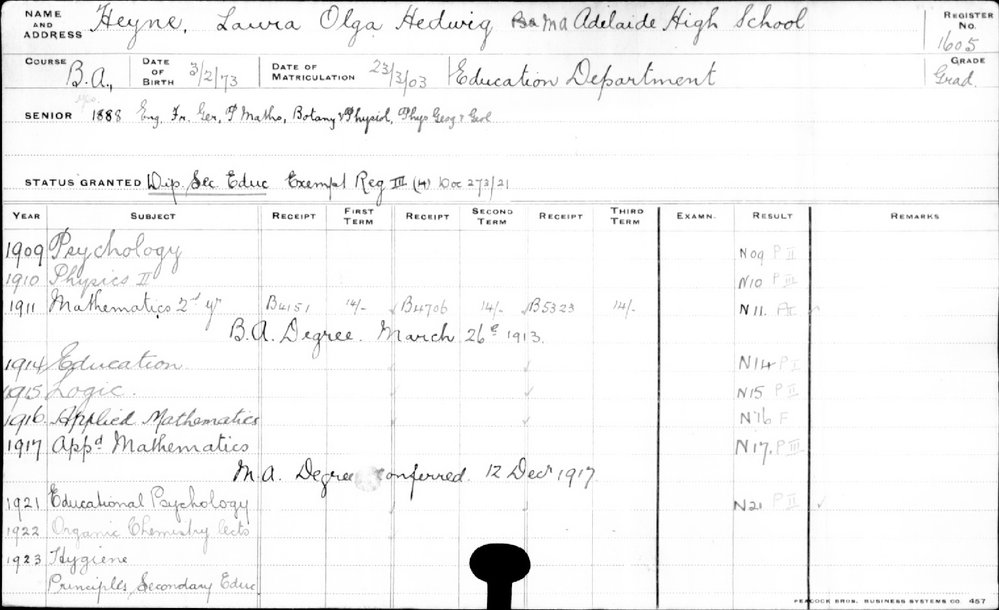 NAME AND ADDRESS Heyne, Laura Olga Hedwig BA MA Adelaide High School REGISTER No. 1605
COURSE B.A., DATE OF BIRTH 3/2/73 DATE OF MATRICULATION 23/3/03 Education Department GRADE Grad.
SENIOR 1888 Eng. Fr. Ger, P Maths, Botany & Physiol, Phys Geog & Geol
STATUS GRANTED Dip. Sec Educ Exempt Reg III (4) Doc 273/21
YEAR SUBJECT RECEIPT FIRST TERM RECEIPT SECOND TERM RECEIPT THIRD TERM EXAMN. RESULT REMARKS
1909 Psychology N09 P II
1910 Physics II N10 P III
1911 Mathematics 2nd yr B4151 14/- ✓ B4706 14/- ✓ B5323 14/- N11. ✓
B.A. Degree. March 26th 1913.
1914 Education ✓ ✓ N14 P I
1915 Logic. ✓ ✓ N15 P II
1916. Applied Mathematics ✓ ✓ N16 F
1917 Appd Mathematics N17. P III
M.A. Degree Conferred. 12 Decr 1917.
1921 Educational Psychology N21 P II ✓
1922 Organic Chemistry lects
1923 Hygiene
Principles, Secondary Educ.
PEACOCK BROS. BUSINESS SYSTEMS CO. 457